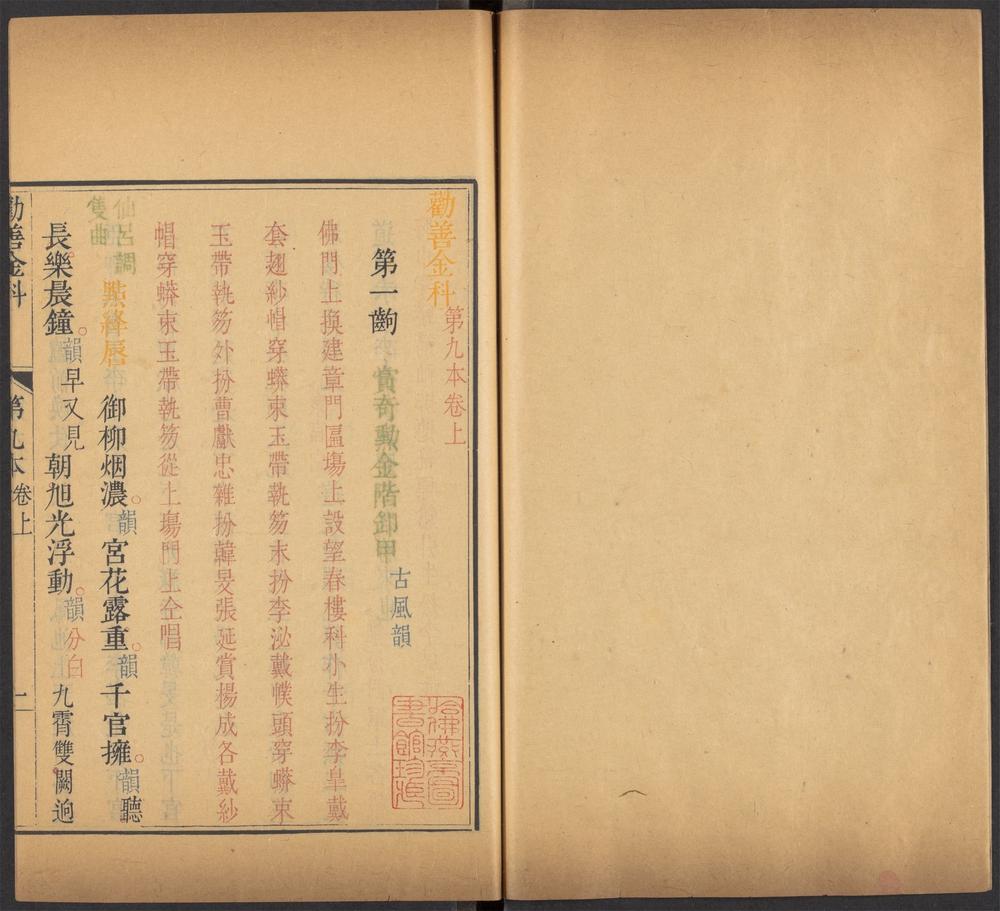 勸善金科第九本卷上
第一齣 賞奇勳金階卸甲 古風韻
佛門上換建章門匾塲上設望春樓科小生扮李皐戴
套翅紗帽穿蟒束玉帶執笏末扮李泌戴幞頭穿蟒束
玉帶執笏外扮曹獻忠雜扮韓旻張延賞楊成各戴紗
帽穿蟒束玉帶執笏從上塲門上仝唱
仙呂調
隻曲
點絳唇 御柳烟濃。韻宮花露重。韻千官擁。韻聽
長樂晨鐘。韻早又見朝旭光浮動。韻分白九霄雙闕逈
勸善金科 第九本卷上 一
哈佛燕京圖書館珍藏